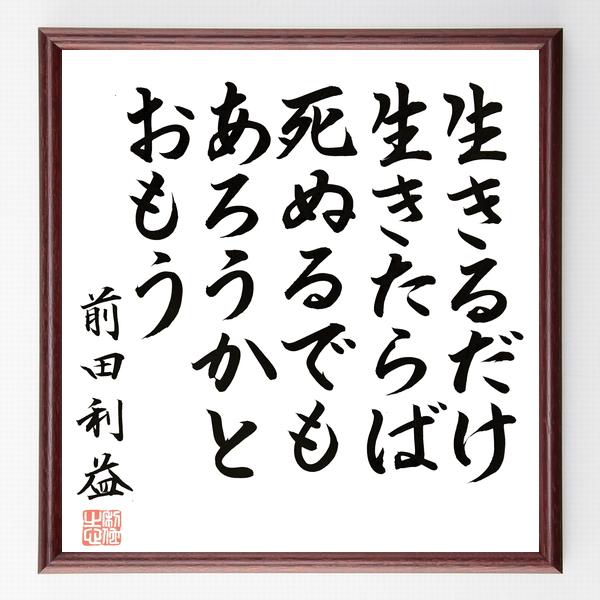 生きるだけ
生きたらば
死ぬるでも
あろうかと
おもう
前田利益